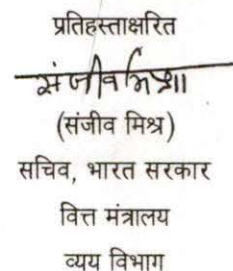 प्रतिहस्ताक्षरित
संजीव मिश्रा
(संजीव मिश्र)
सचिव, भारत सरकार
वित्त मंत्रालय
व्यय विभाग